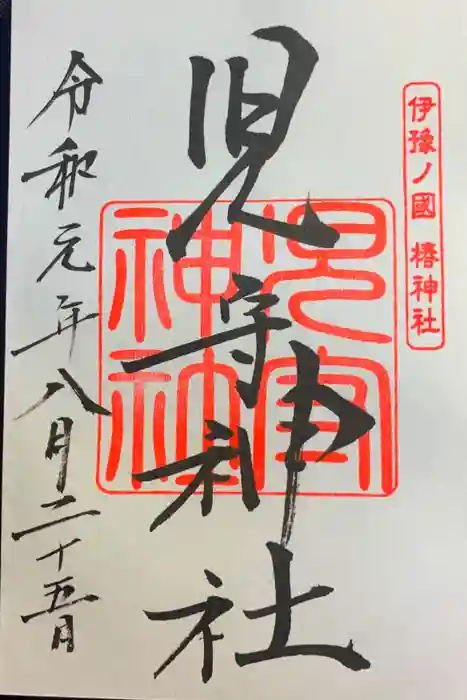 伊豫ノ國 椿神社
児守神社
児守神社
令和元年八月二十五日